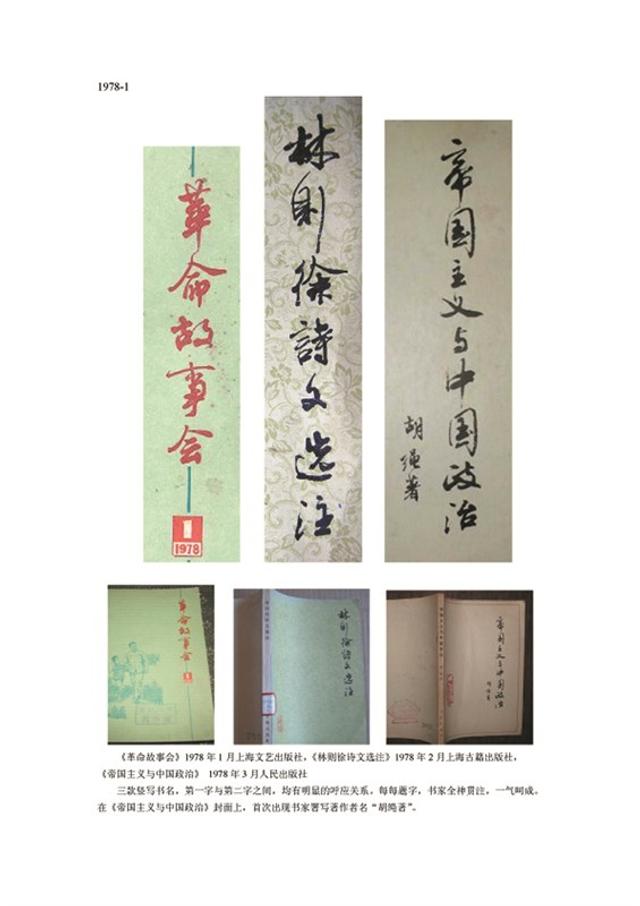 1978-1
革命故事会
1
1978
林则徐詩文选注
帝国主义与中国政治
胡绳著
革命故事会
林则徐詩文选注
帝国主义与中国政治
胡绳著
《革命故事会》1978 年 1 月上海文艺出版社，《林则徐诗文选注》1978 年 2 月上海古籍出版社，
《帝国主义与中国政治》 1978 年 3 月人民出版社
三款竖写书名，第一字与第二字之间，均有明显的呼应关系。每每题字，书家全神贯注，一气呵成。
在《帝国主义与中国政治》封面上，首次出现书家署写著作者名“胡绳著”。